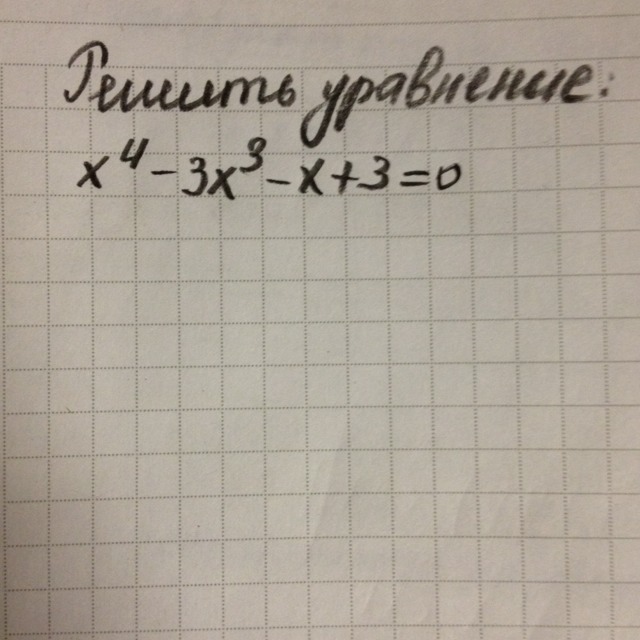 Решить уравнение:
x⁴-3x³-x+3=0